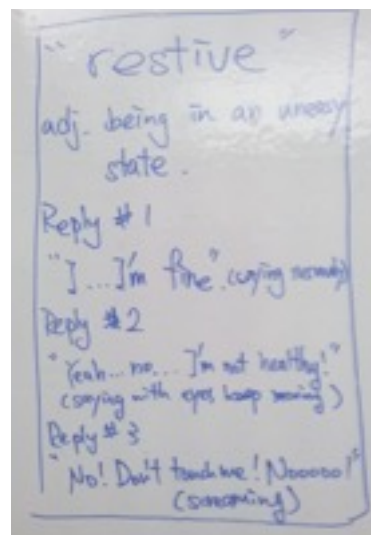 "restive"
adj. being in an uneasy
state.
Reply #1
"I...I'm fine". (saying nervously)
Reply #2
"Yeah...no... I'm not healthy!"
(saying with eyes keep moving)
Reply #3
"No! Don't touch me! Nooooo!"
(screaming)